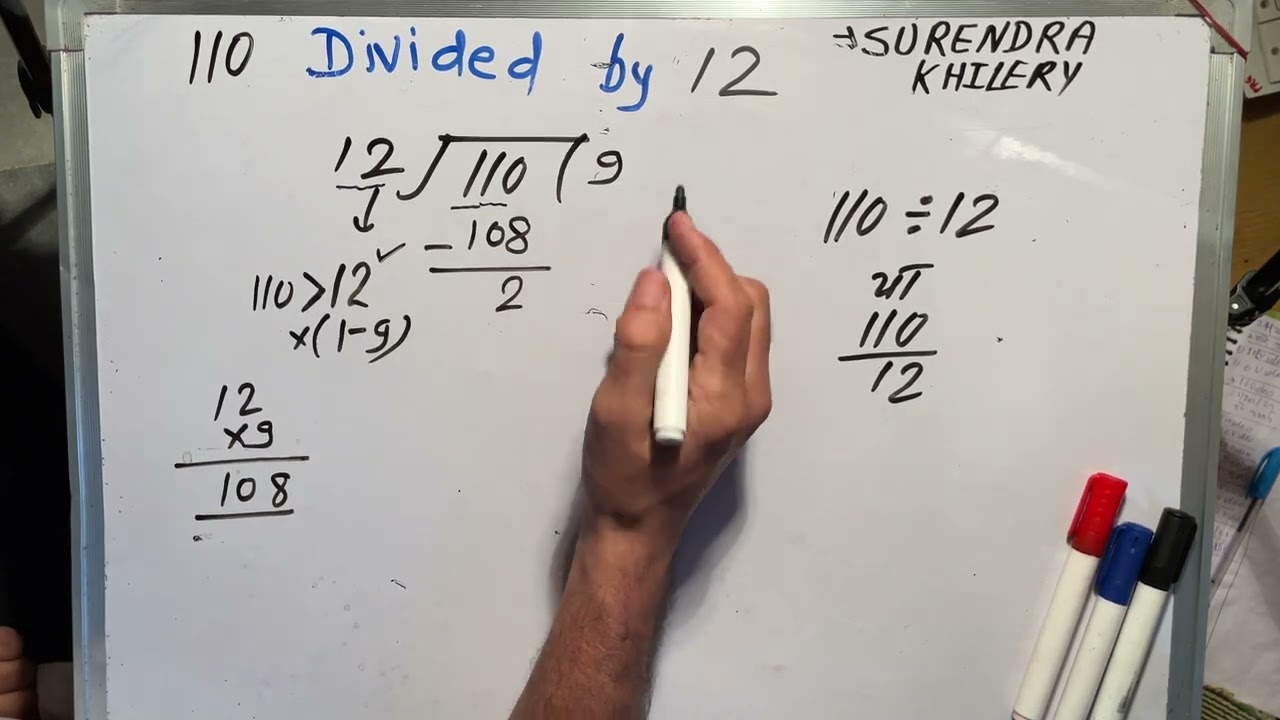 110 Divided by 12
→SURENDRA
KHILERY
12 √110 ( 9
-108
2
110>12 ✓
×(1-9)
12
×9
108
110÷12
या
110
12